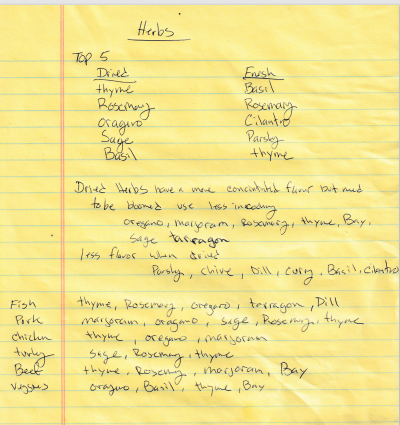 Herbs
Top 5
Dried Fresh
thyme Basil
Rosemary Rosemary
oragano Cilantro
Sage Parsley
Basil thyme
Dried Herbs have a more concentrated flavor but need
to be bloomed use less in cooking
oregano, marjoram, Rosemary, thyme, Bay,
Sage tarragon
less flavor when dried
Parsly, chive, Dill, curry, Basil, cilantro
Fish thyme, Rosemary, oregano, tarragon, Dill
Pork marjoram, oragano, sage, Rosemary, thyme
chicken thyme, oregano, marjoram
turky sage, Rosemary, thyme
Beef thyme, Rosemary, marjoram, Bay
veggies oragano, Basil, thyme, Bay